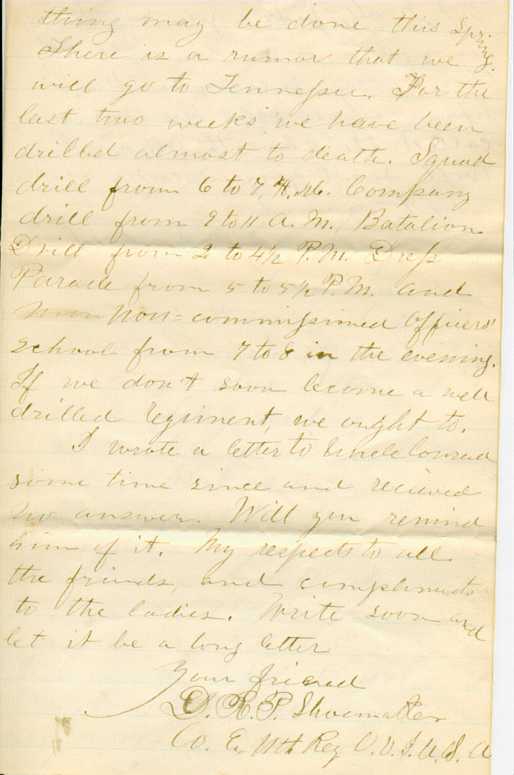 thing may be done this Spring.
There is a rumor that we
will go to Tennessee. For the
last two weeks we have been
drilled almost to death. Squad
drill from 6 to 7 A.M. Company
drill from 9 to 11 A.M. Batalion
Drill from 2 to 4 1/2 P.M. Dress
Parade from 5 to 5 1/2 P.M. and
non=commissioned Officers'
School from 7 to 8 in the evening.
If we don't soon become a well
drilled regiment, we ought to.
I wrote a letter to Uncle Conrad
some time since and recieved
no answer. Will you remind
him of it. My respects to all
the friends, and compliments
to the ladies. Write soon and
let it be a long letter
Your friend
D. R. P. Shoemaker
Co. E, Reg O. V. I. U. S. A